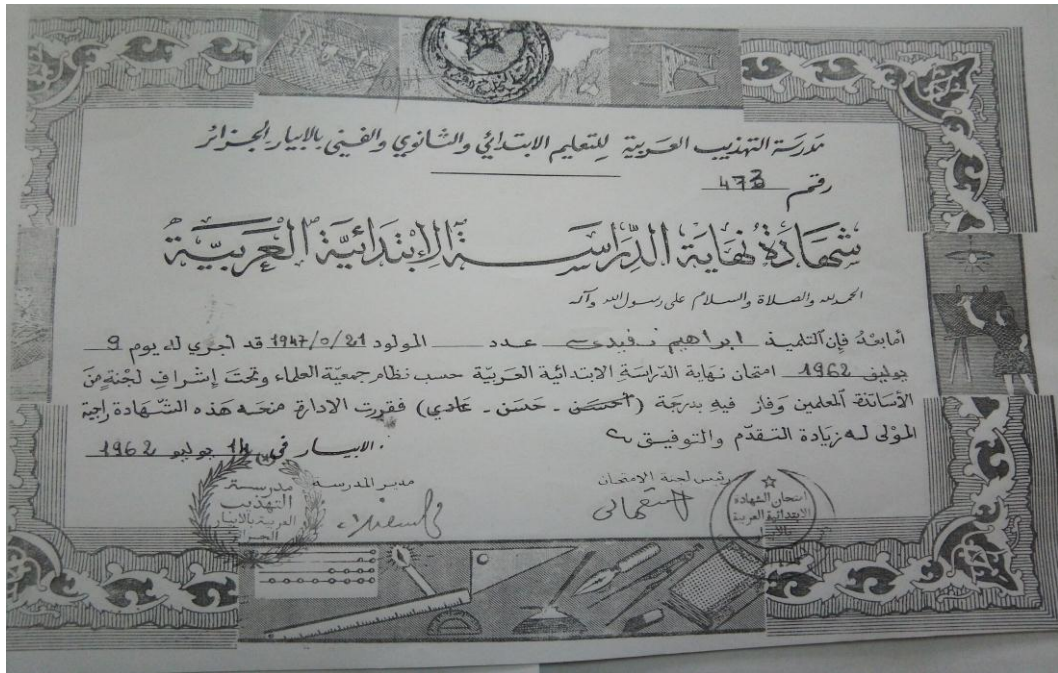 مدرسة التهذيب العربية للتعليم الابتدائي والثانوي والفني بالابيار الجزائر
رقم 473
شهادة نهاية الدراسة الابتدائية العربية
الحمد لله والصلاة والسلام على رسول الله وآله
أما بعد فإن التلميذ ابراهيم عدد المولود 1947/0/21 قد اجري له يوم 9
جوليو 1962 امتحان نهاية الدراسة الابتدائية العربية حسب نظام جمعية العلماء وتحت إشراف لجنة من
الأساتذة المعلمين وفاز فيه بدرجة (أحسن - حسن - عادي) فقررت الادارة منحه هذه الشهادة راجية
المولى له زيادة التقدم والتوفيق
الابيار في 14 جوليو 1962
رئيس لجنة الامتحان
مدير المدرسة
امتحان الشهادة
الابتدائية العربية
مدرسة
التهذيب
العربية بالابيار
الجزائر